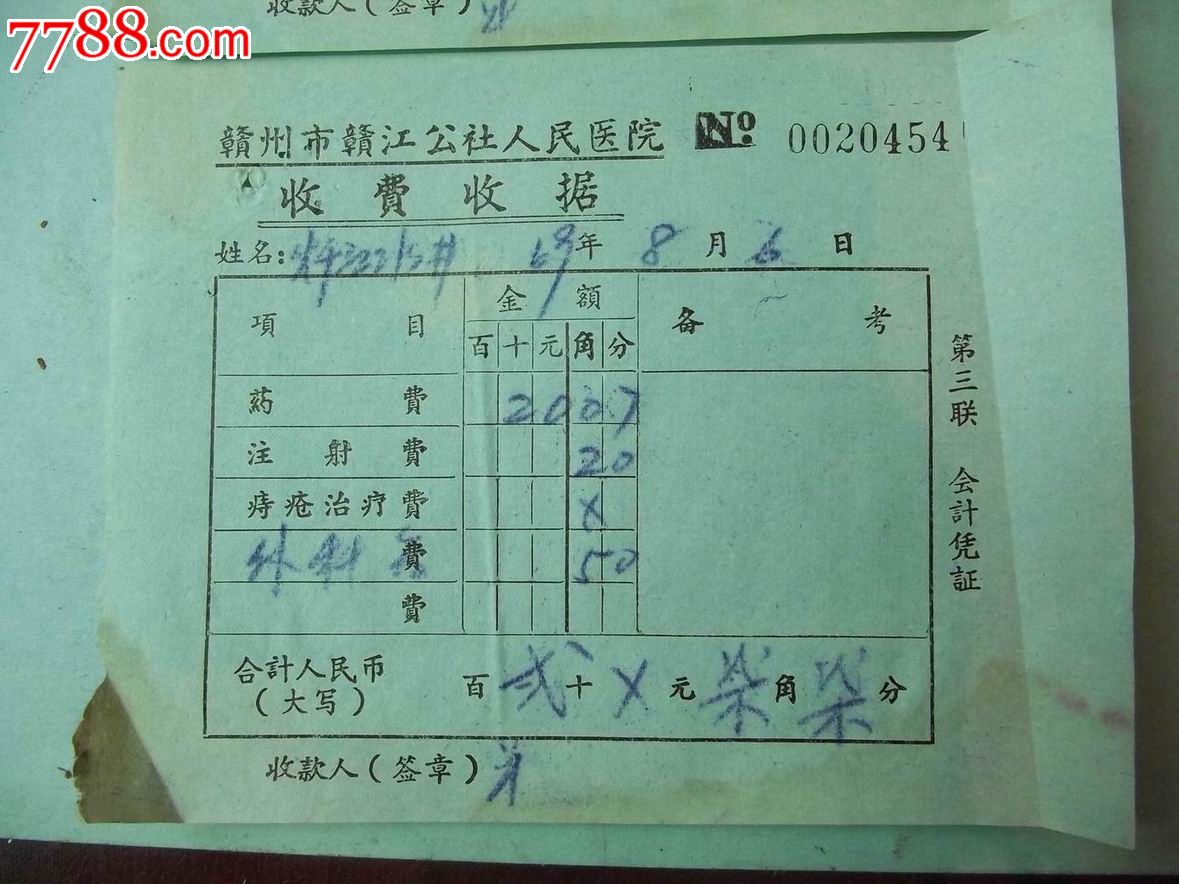 收款人(签章)
7788.com
贛州市贛江公社人民医院 No 0020454
收費收据
姓名: 69年8月6日
項目 金額 备考
百十元角分
葯費 2007
注射費 20
痔瘡治疗費 x
外科 費 50
費
合計人民币(大写) 百弍十x元柒角柒分
收款人(签章)
第三联 会計凭証